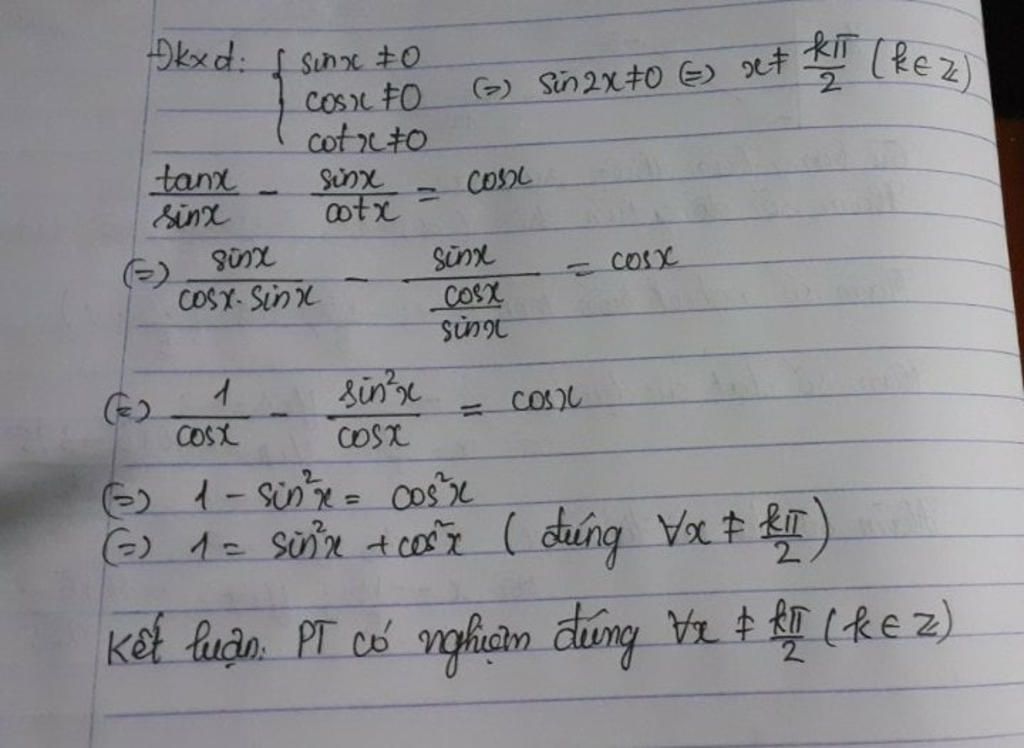 Đkxđ: { sinx ≠ 0
cosx ≠ 0 (=) sin2x ≠ 0 (=) x ≠ kπ/2 (k ∈ Z)
cotx ≠ 0
tanx/sinx - sinx/cotx = cosx
(=) sinx/(cosx.sinx) - sinx/(cosx/sinx) = cosx
(=) 1/cosx - sin²x/cosx = cosx
(=) 1 - sin²x = cos²x
(=) 1 = sin²x + cos²x ( đúng ∀x ≠ kπ/2 )
Kết luận: PT có nghiệm đúng ∀x ≠ kπ/2 (k ∈ Z)